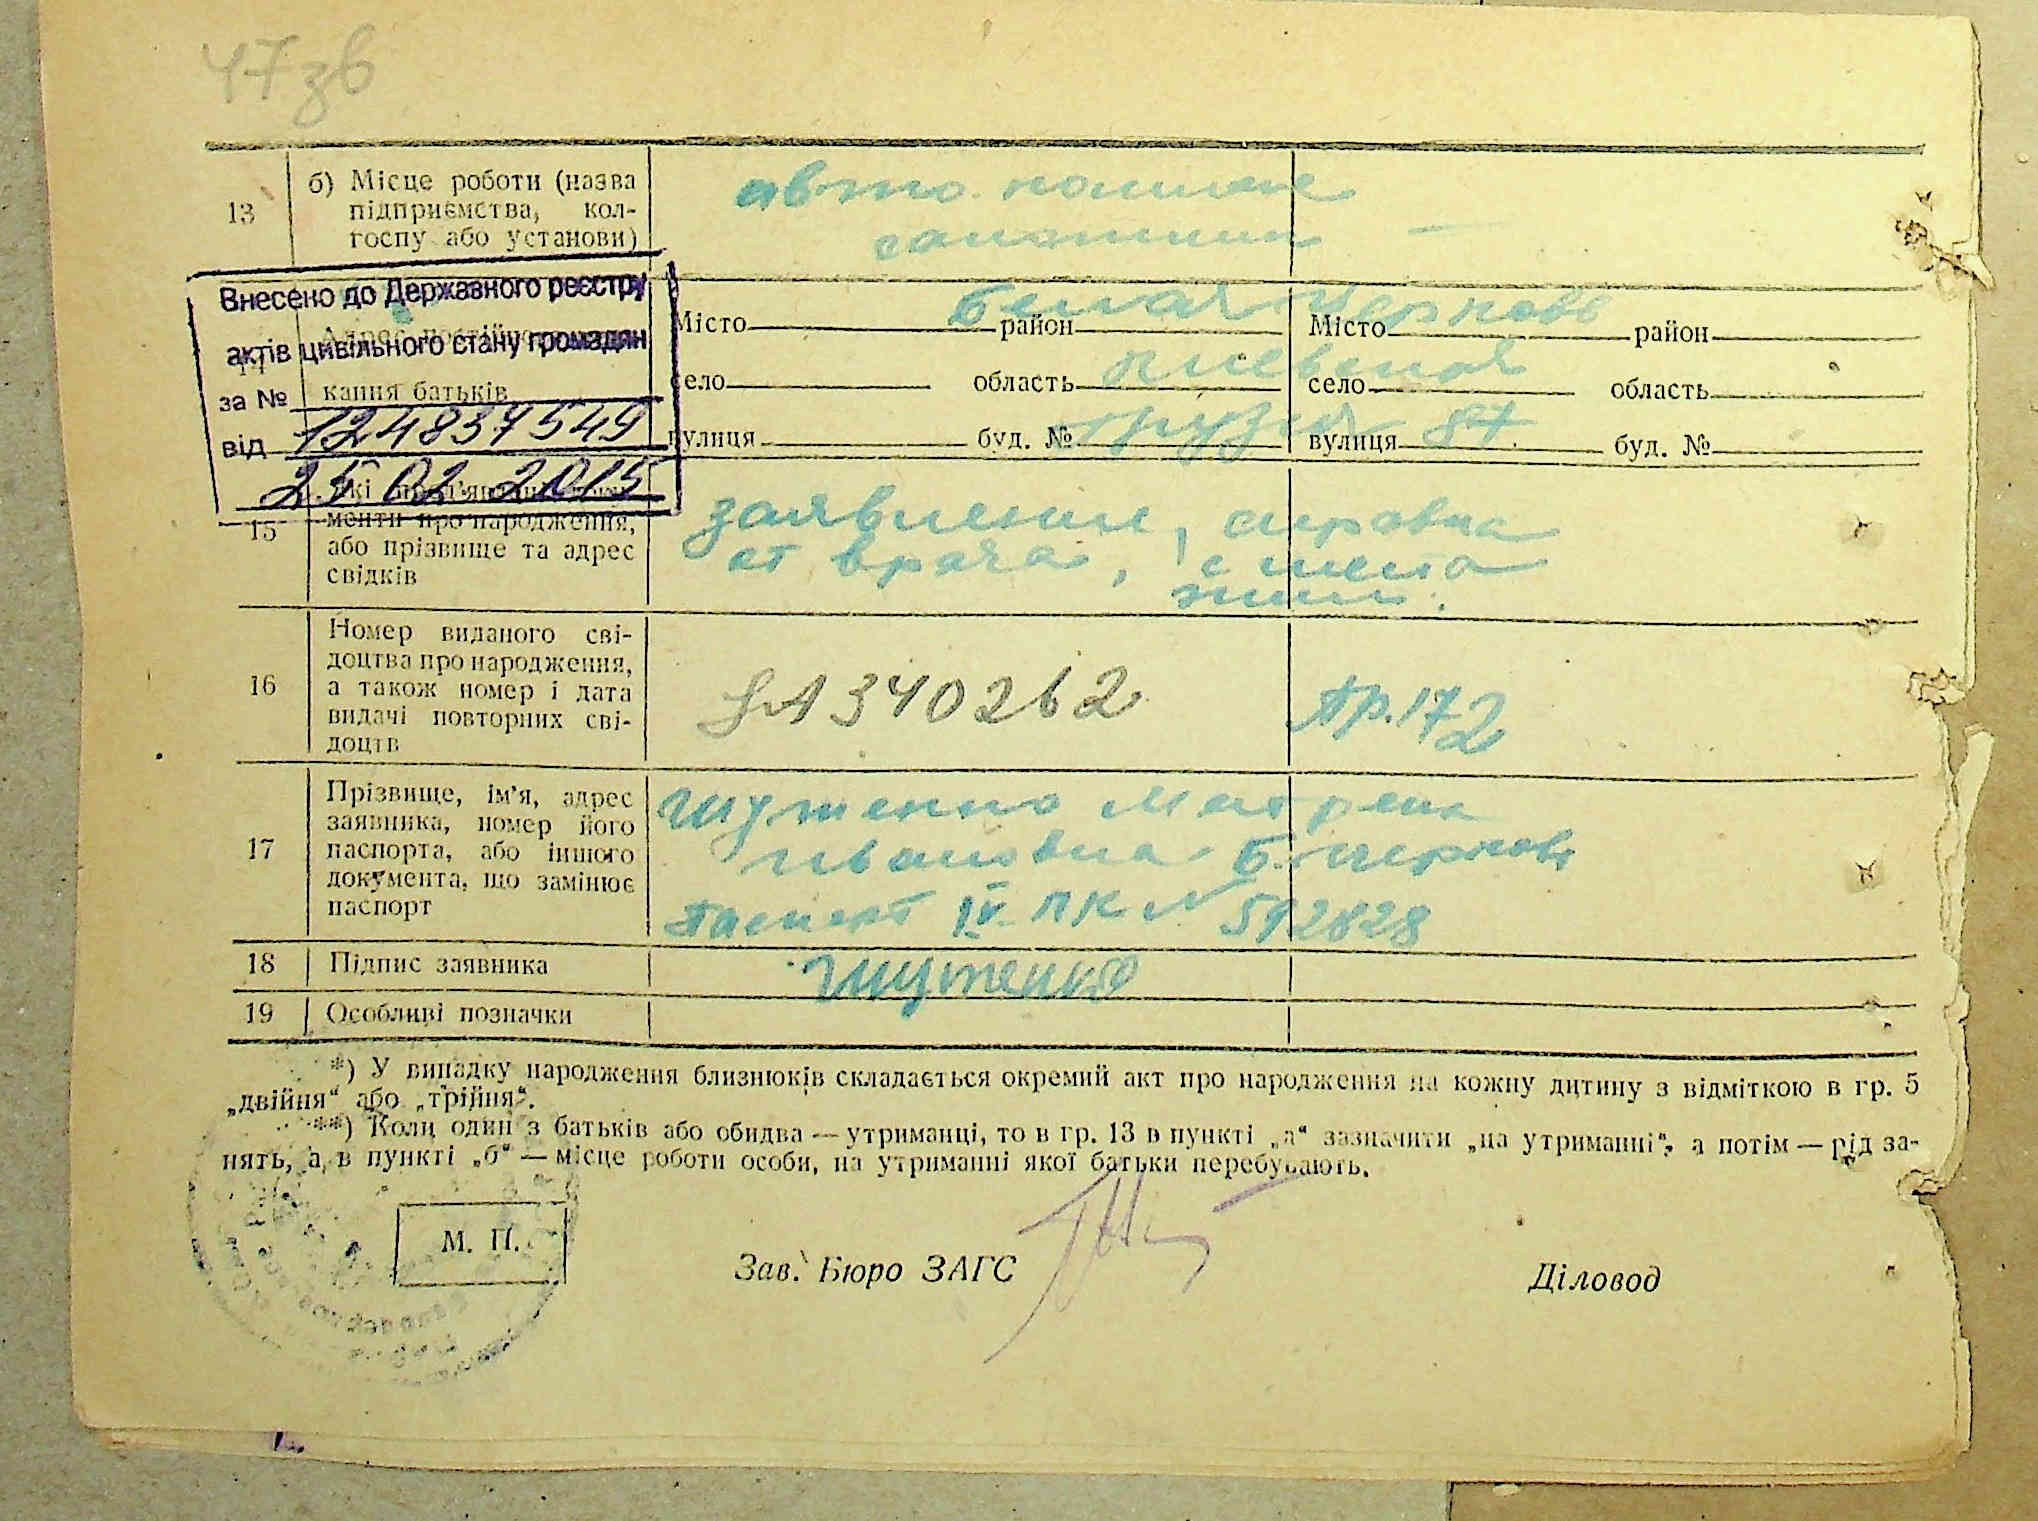 47зв
13
б) Місце роботи (назва
підприємства, кол-
госпу або установи)
авто
—
Внесено до Державного реєстру
актів цивільного стану громадян
за № 124837549
від 25 02 2015
кання батьків
Місто район Місто район
Белая Церковь
село область село область
киевская
вулиця буд. № вулиця буд. №
87
15
менти про народження,
або прізвище та адрес
свідків
заявление, справка
от врача, с места
16
Номер виданого сві-
доцтва про народження,
а також номер і дата
видачі повторних сві-
доцтв
340262
Пр. 172
17
Прізвище, ім’я, адрес
заявника, номер його
паспорта, або іншого
документа, що замінює
паспорт
Шутенко Матрена
Ивановна Б. Церковь
Паспорт IV ПК № 592828
18 Підпис заявника
Шутенко
19 Особливі позначки
*) У випадку народження близнюків складається окремий акт про народження на кожну дитину з відміткою в гр. 5
„двійня“ або „трійня“.
**) Коли один з батьків або обидва — утриманці, то в гр. 13 в пункті „а“ зазначити „на утриманні“, а потім — рід за-
нять, а в пункті „б“ — місце роботи особи, на утриманні якої батьки перебувають.
М. П.
Зав. Бюро ЗАГС
Діловод